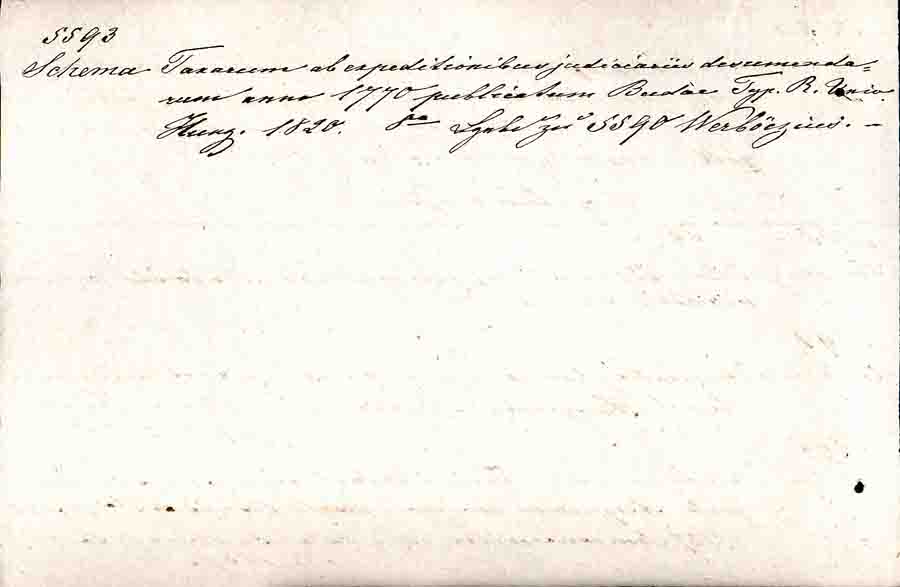 5593
Schema Taxarum ab expeditionibus judiciariis desumenda=
rum anno 1770 publicatum Budae Typ. R. Univ.
Hung. 1820. 8º 5590 Werbőczius. –